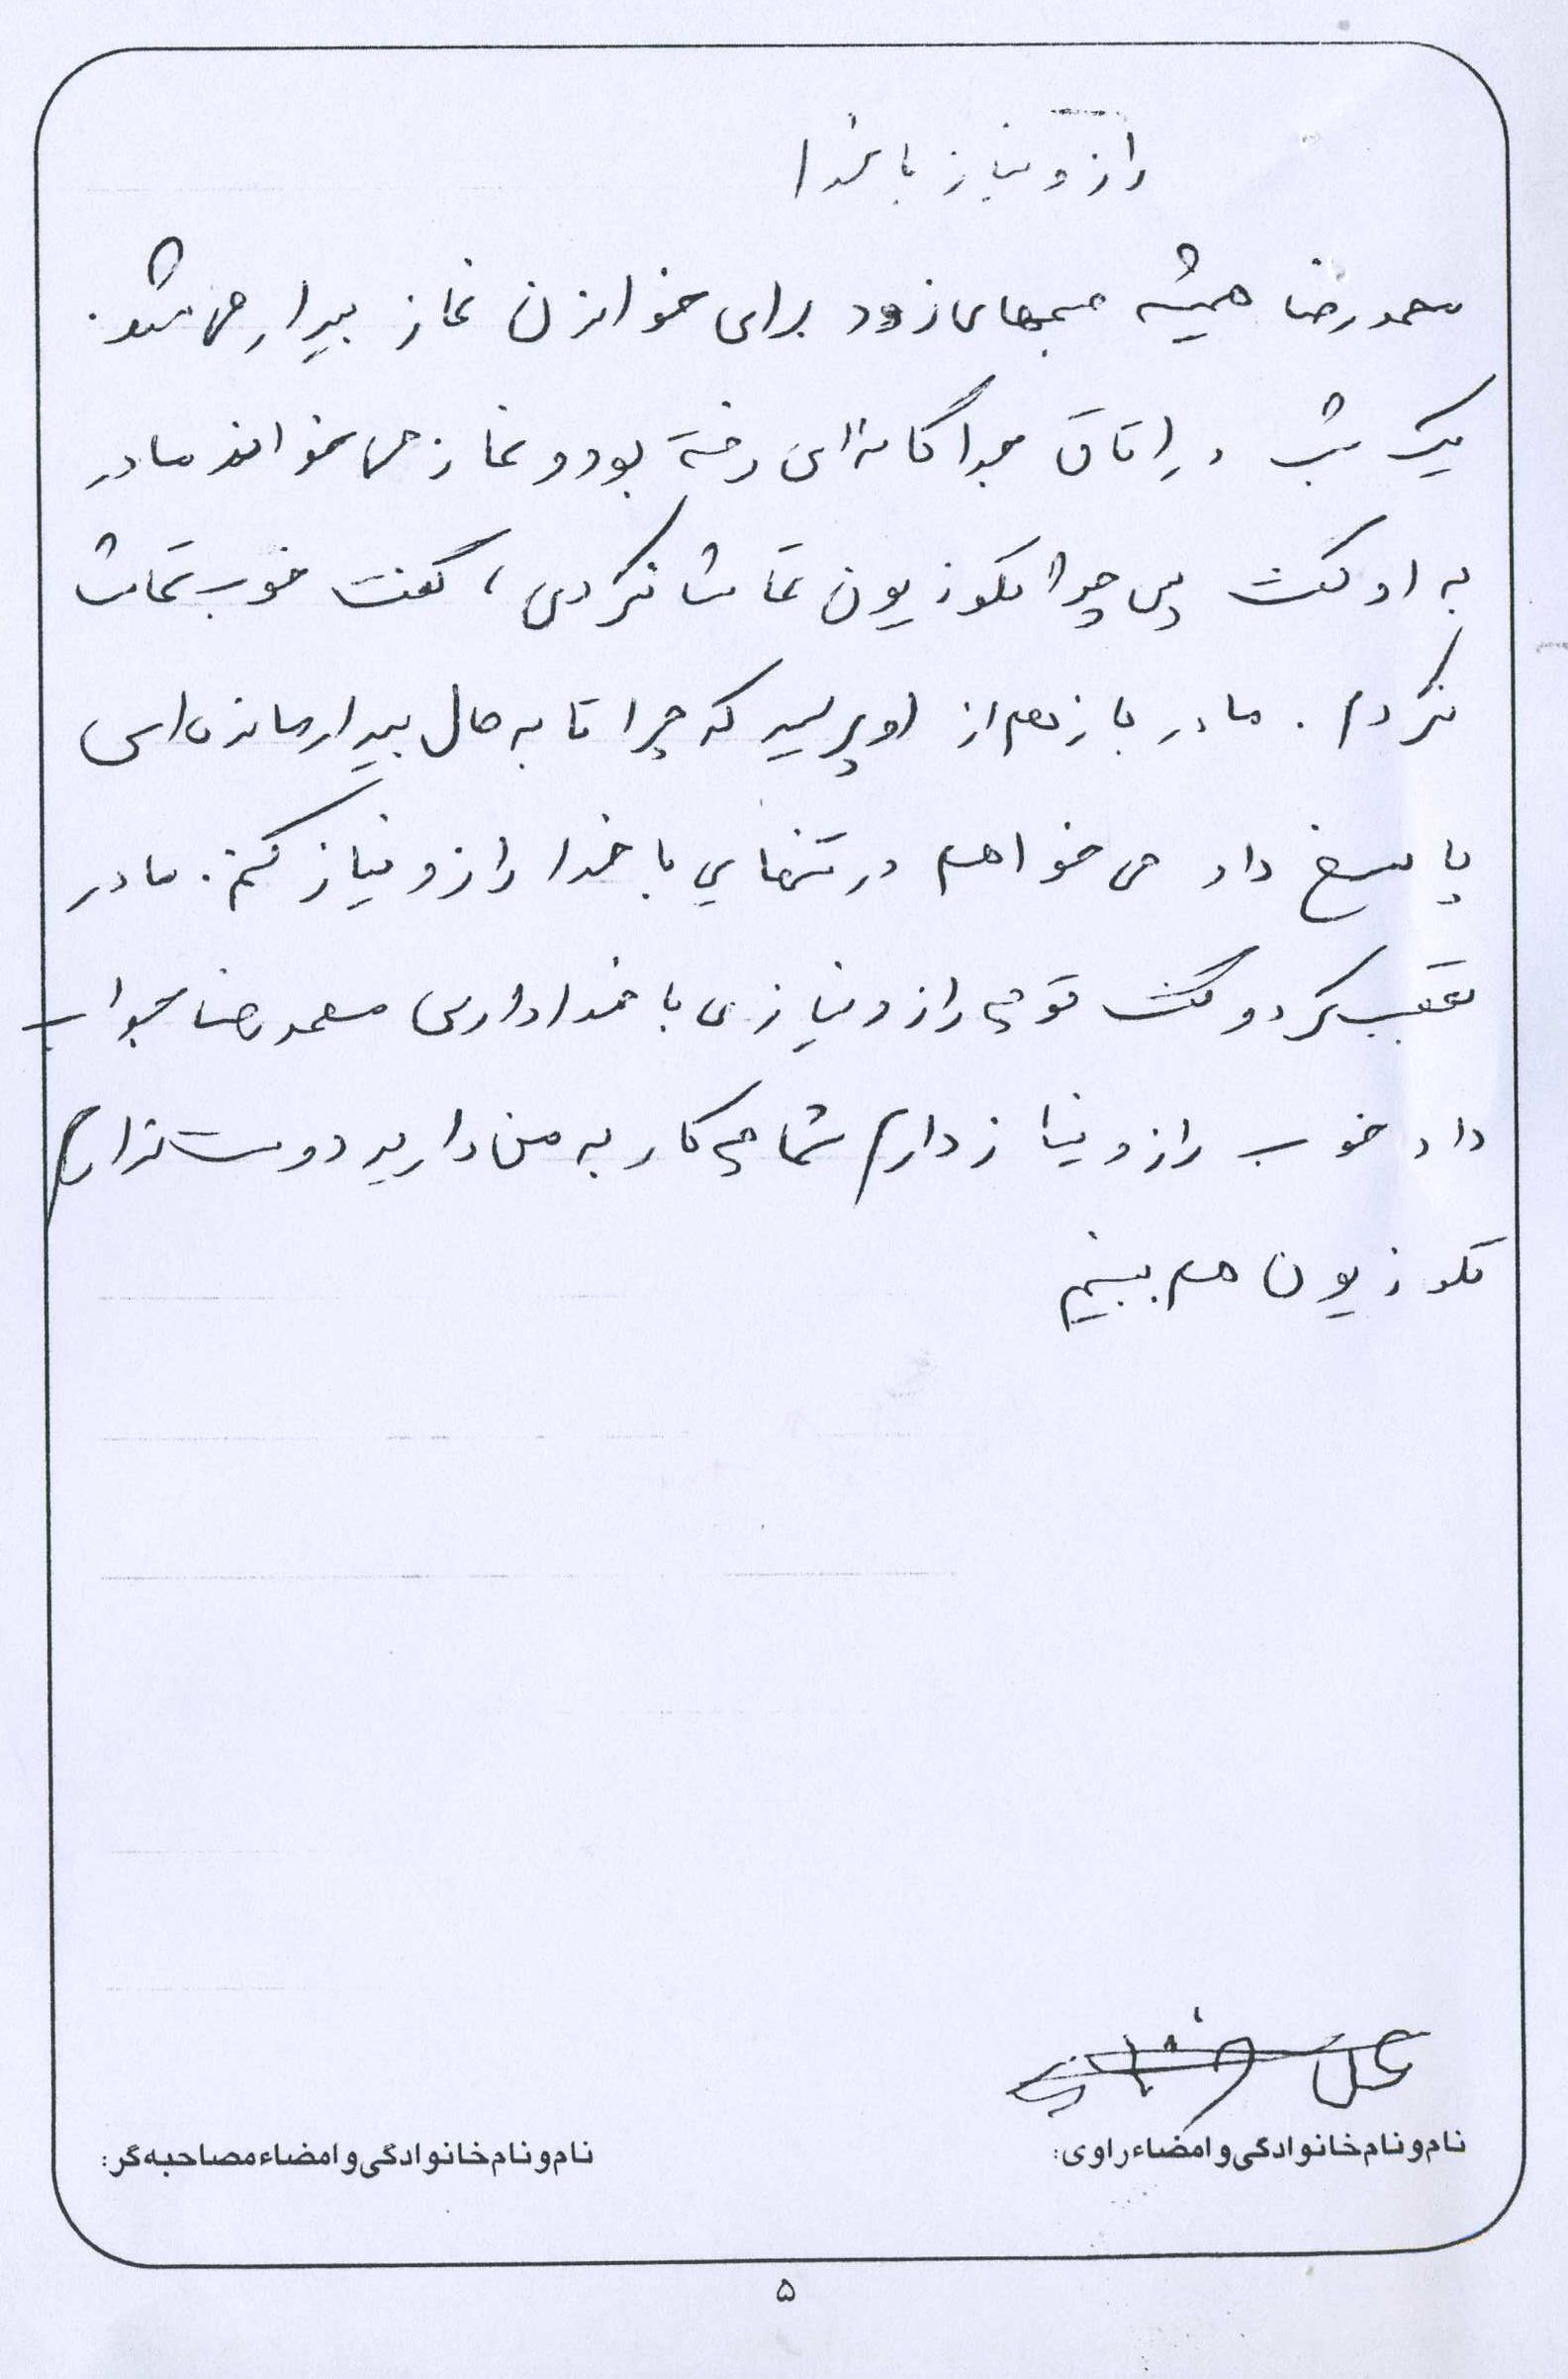 راز و نیاز با خدا
محمدرضا همیشه صبحهای زود برای خواندن نماز بیدار می شد.
یک شب در اتاق جداگانه ای رفته بود و نماز می خواند مادر
به او گفت پس چرا تلوزیون تماشا نکردی، گفت خوب تماشا
نکردم. مادر باز هم از او پرسید که چرا تا به حال بیدار مانده ای
پاسخ داد می خواهم در تنهایی با خدا راز و نیاز کنم. مادر
تعجب کرد و گفت تو چه راز و نیازی با خدا داری محمدرضا جواب
داد خوب راز و نیاز دارم شما چه کار به من دارید دوست ندارم
تلوزیون هم ببینم
نام و نام خانوادگی و امضاء راوی:
نام و نام خانوادگی و امضاء مصاحبه گر:
۵